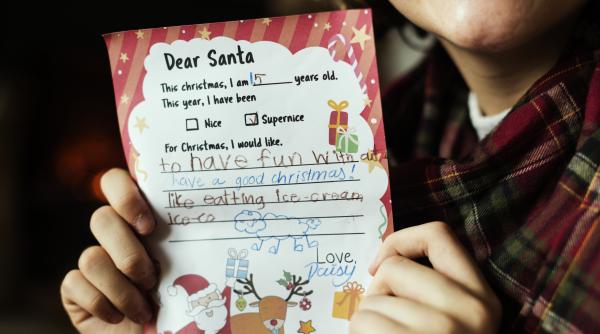 Dear Santa
This christmas, I am 15 years old.
This year, I have been
Nice Supernice
For Christmas, I would like.
to have fun with
have a good christmas!
like eatting Ice-cream,
Ice-co
Love,
Daisy